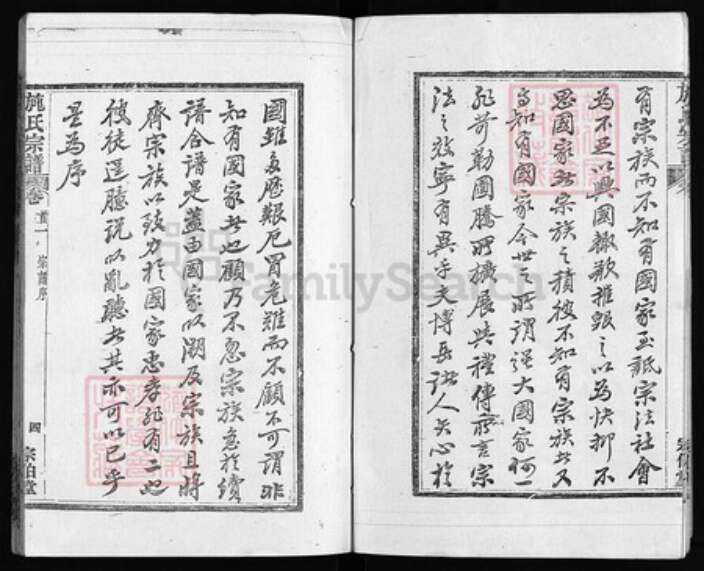 有宗族而不知有國家至詆宗法社會
為不足以興國輒欲摧毀之以為快抑不
思國家者宗族之積彼不知有宗族者又
焉知有國家今世之所謂強大國家何一
非奇勒圖騰所擴展與禮傳所言宗
法之效寧有異乎夫博岳諸人矢心於
國雖多歷艱厄冒危難而不顧不可謂非
知有國家者也顧乃不忽宗族急於續
譜合譜是蓋由國家以溯及宗族且將
齊宗族以致力於國家忠孝非有二也
彼徒逞臆說以亂聽者其亦可以已乎
是為序
施氏宗譜
卷首一
宗譜序
四
宗伯堂
FamilySearch